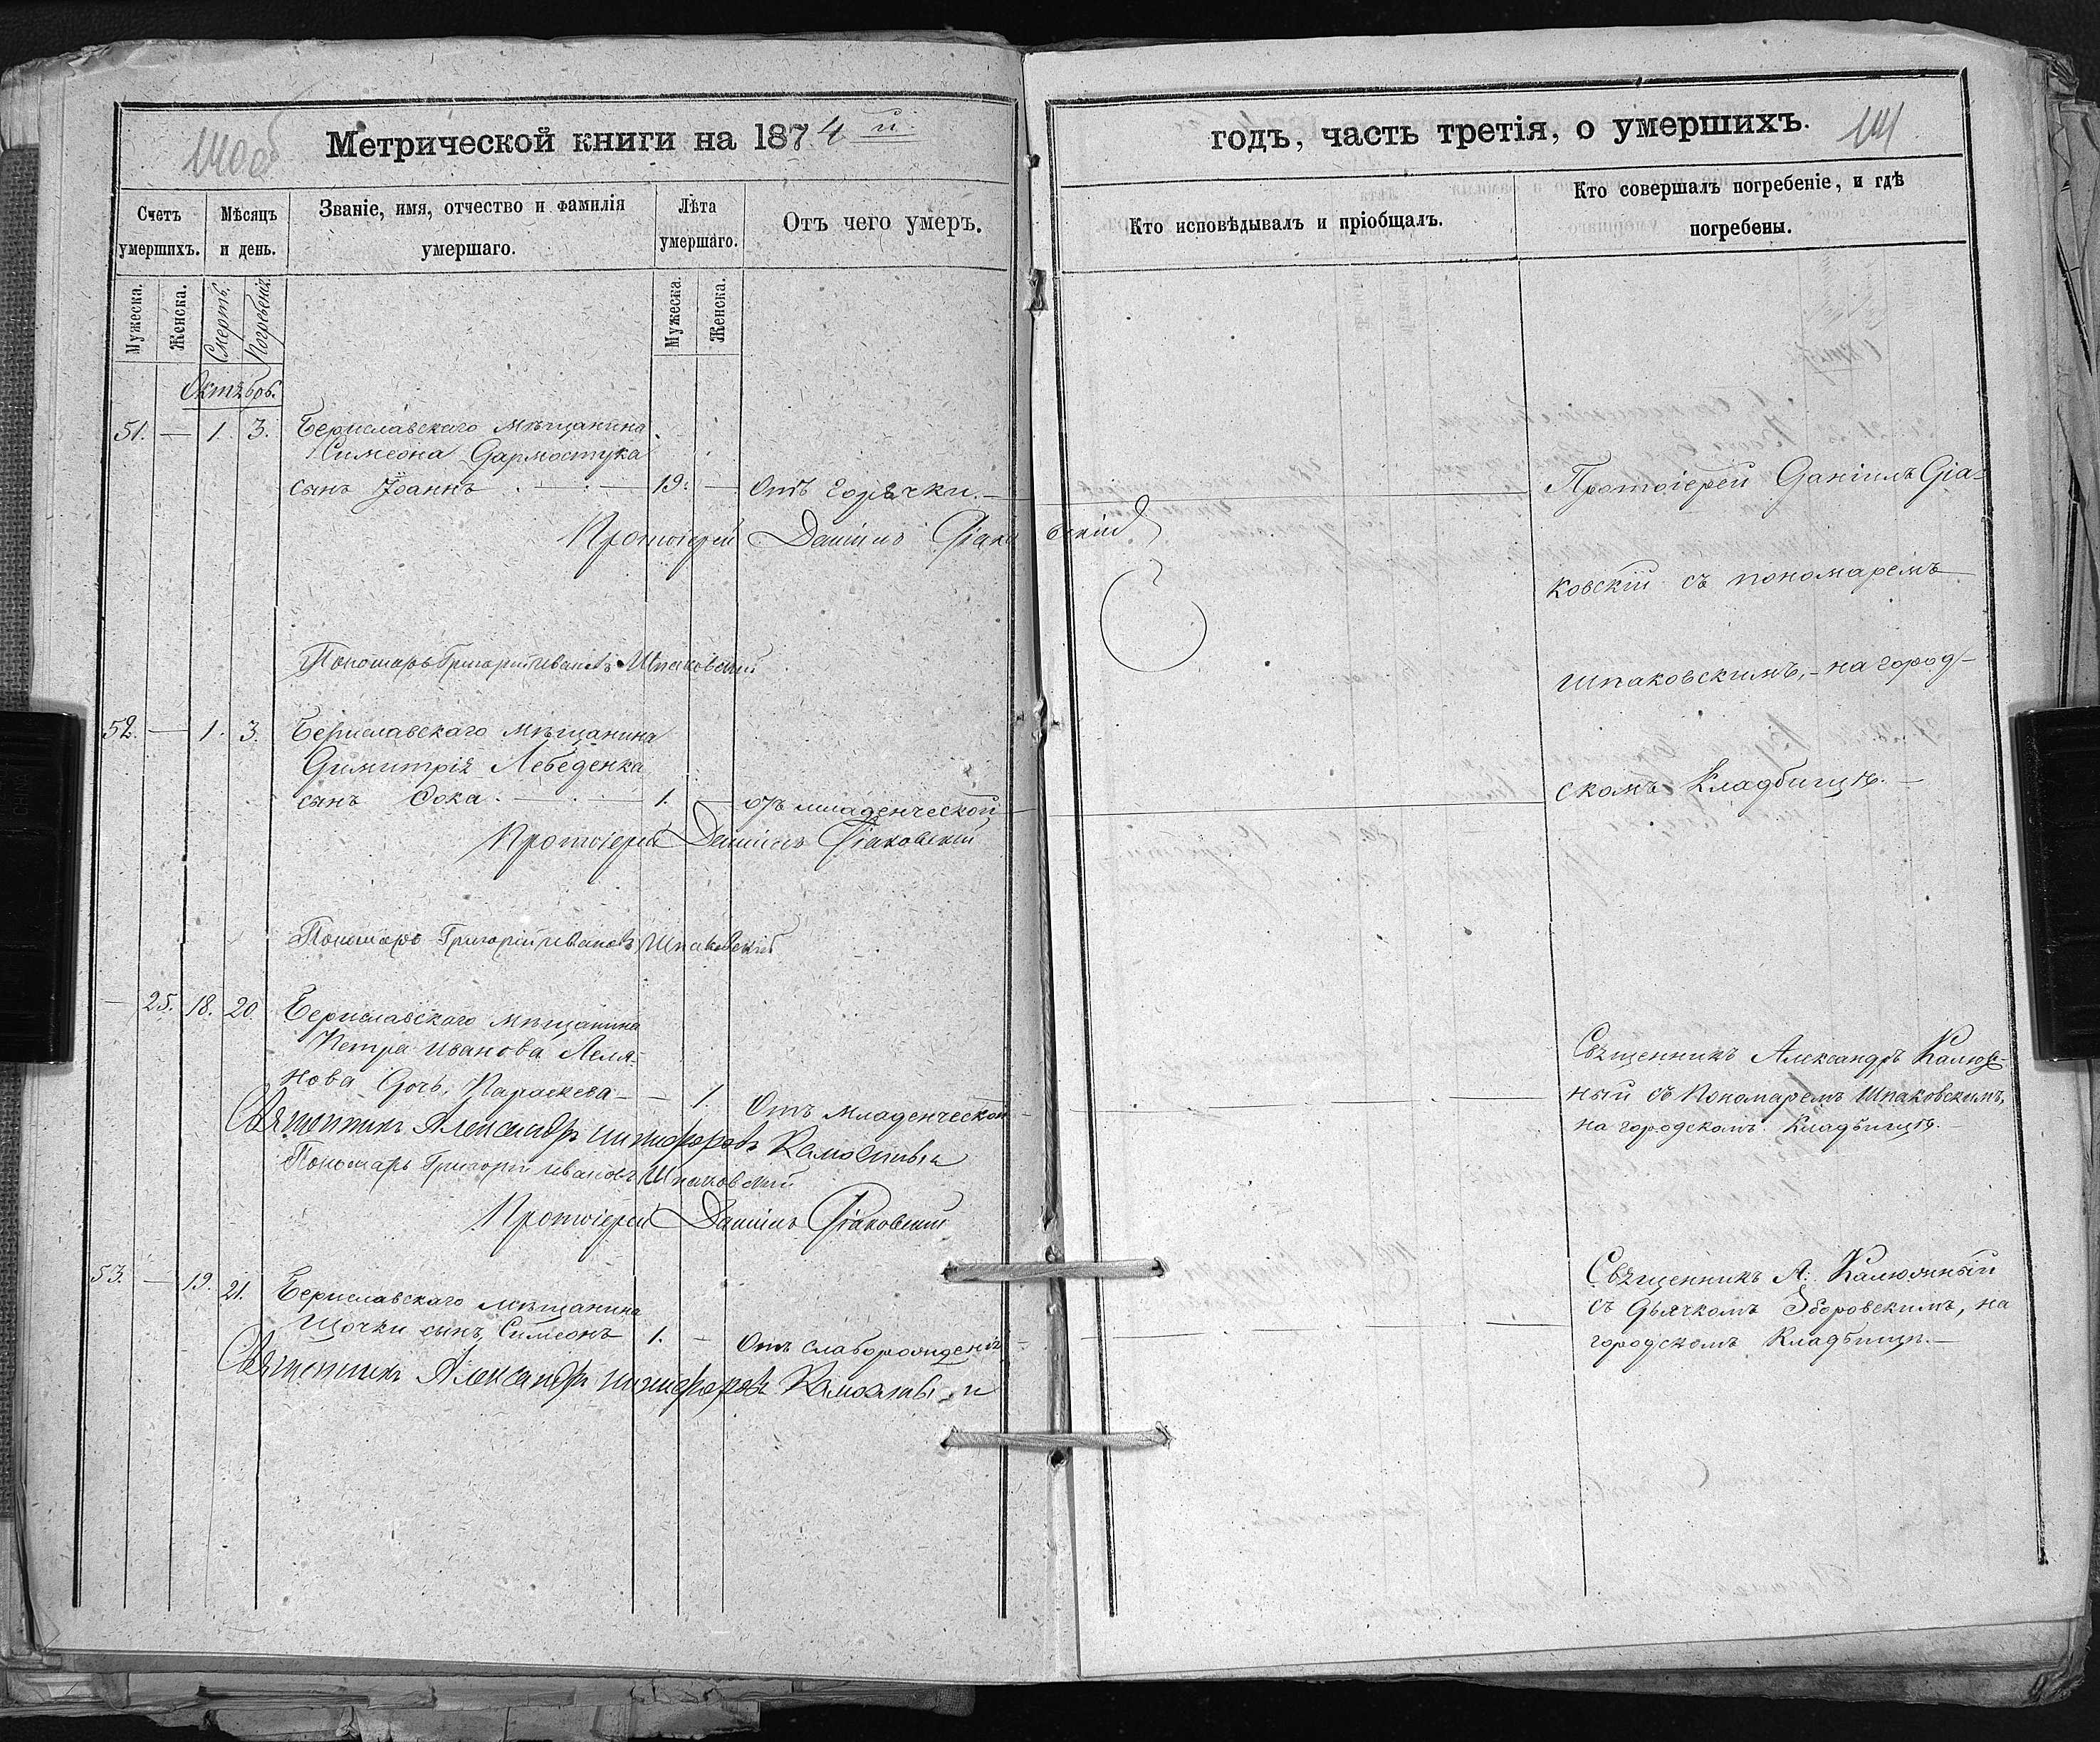 140об
Метрической книги на 1874й
Счетъ умершихъ.
Мѣсяцъ и день.
Званіе, имя, отчество и фамилія умершаго.
Лѣта умершаго.
Отъ чего умеръ.
Мужеска.
Женска.
Смерть.
Погребенія.
Мужеска.
Женска.
Октябрь.
51. — 1. 3. Бериславскаго мѣщанина
Симеона Дармостука
сынъ Іоаннъ — 19. — Отъ горячки. —
Протоіерей Даніилъ Діаковскій
Пономарь Григорій Ивановъ Шпаковскій
52. — 1. 3. Бериславскаго мѣщанина
Димитрія Лебеденка
сынъ Ѳока. — 1. — отъ младенческой —
Протоіерей Даніилъ Діаковскій
Пономарь Григорій Ивановъ Шпаковскій
— 25. 18. 20. Бериславскаго мѣщанина
Петра Иванова Леля-
нова дочь, Параскева — — 1. Отъ младенческой —
Священникъ Александръ Никифоровъ Калюжный
Пономарь Григорій Ивановъ Шпаковскій
Протоіерей Даніилъ Діаковскій
53. — 19. 21. Бериславскаго мѣщанина
Щочки сынъ, Симеонъ 1. — Отъ слаборожденія —
Священникъ Александръ Никифоровъ Калюжный
годъ, часть третія, о умершихъ.
141
Кто исповѣдывалъ и пріобщалъ.
Кто совершалъ погребеніе, и гдѣ погребены.
Протоіерей Даніилъ Діа-
ковскій съ пономаремъ
Шпаковскимъ, — на город-
скомъ Кладбищѣ. —
Священникъ Александръ Калюж-
ный съ Пономаремъ Шпаковскимъ,
на городскомъ Кладбищѣ. —
Священникъ А. Калюжный
съ Дьячкомъ Зборовскимъ, на
городскомъ Кладбищѣ. —